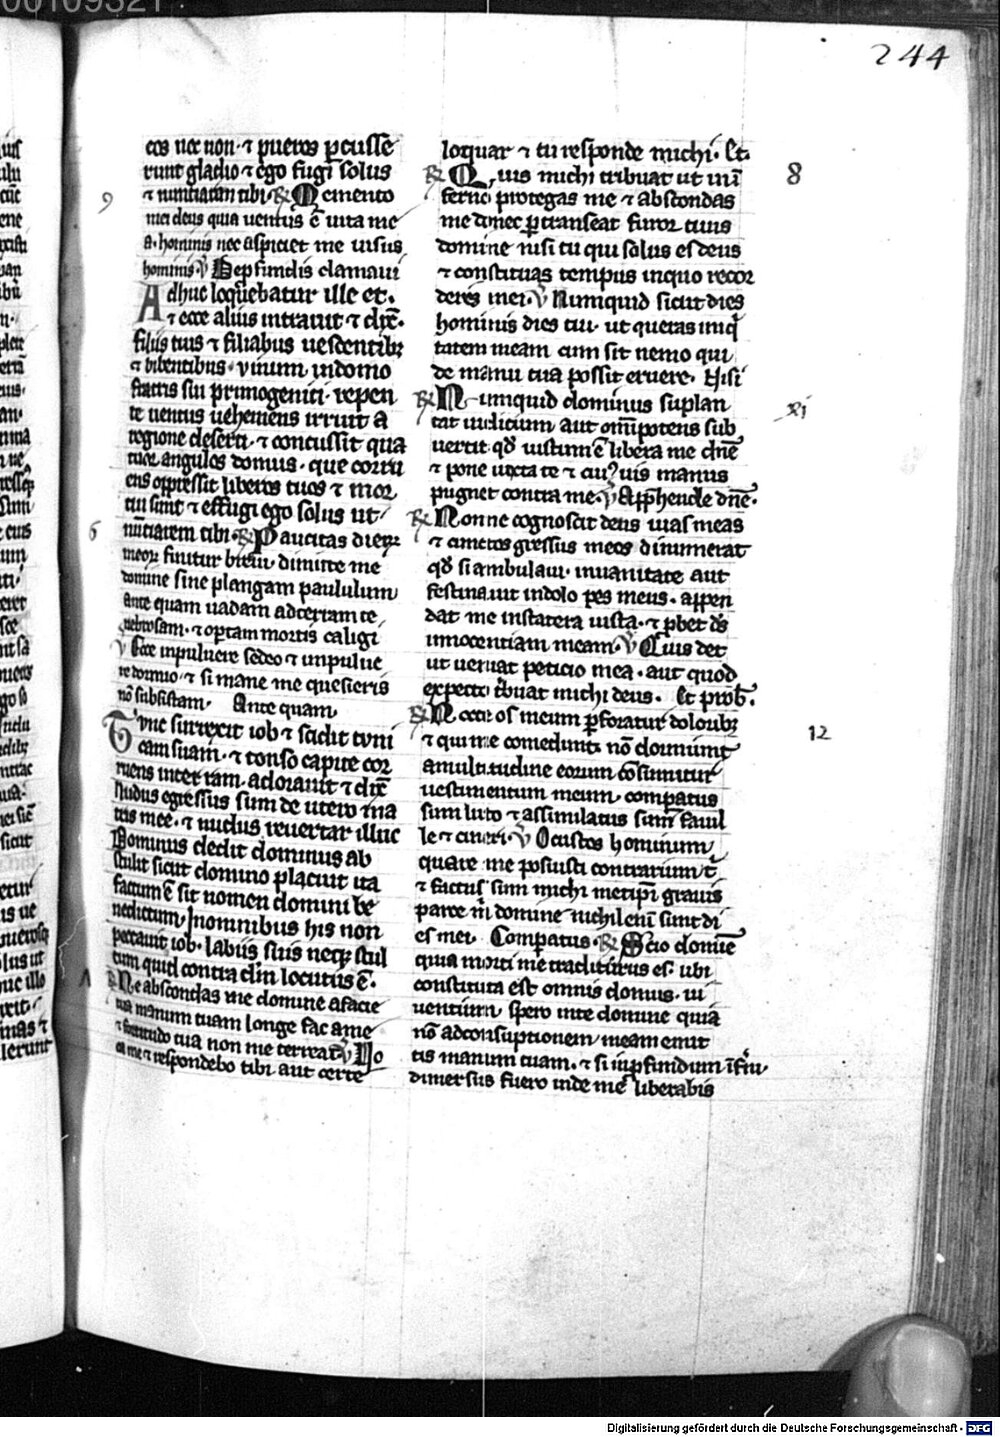 00109321
244
eos nec non ⁊ pueros ꝑcusse
runt gladio ⁊ ego fugi solus
⁊ nuntiarem tibi ℟ Memento
mei deus quia uentus ē uita me
a. hominis nec aspiciet me uisus
hominis ℣ De profundis clamaui
Adhuc loquebatur ille et.
⁊ ecce alius intrauit ⁊ dix̄.
filiis tuis ⁊ filiabus uescentibꝫ
⁊ bibentibus uinum in domo
fratris sui primogeniti repen
te uentus uehemens irruit a
regione deserti ⁊ concussit qua
tuor angulos domus. que corru
ens oppressit liberos tuos ⁊ mor
tui sunt ⁊ effugi ego solus ut
nūtiarem tibi. ℟ Paucitas dierꝝ
meorꝝ finitur breui dimitte me
domine sine plangam paululum
ante quam uadam ad terram te
nebrosam. ⁊ optam mortis caligi
℣ Ecce in puluere sedeo ⁊ in pulue
re dormio ⁊ si mane me quesieris
nō subsistam. Ante quam
Tunc surrexit iob ⁊ scidit tuni
cam suam. ⁊ tonso capite cor
ruens in terram. adorauit ⁊ dix̄
Nudus egressus sum de utero ma
tris mee. ⁊ nudus reuertar illuc
Dominus dedit dominus ab
stulit sicut domino placuit ita
factum ē sit nomen domini be
nedictum. In omnibus his non
peccauit iob labiis suis neqꝫ stul
tum quid contra dm̄ locutus ē.
℟ Ne abscondas me domine a facie
tua manum tuam longe fac a me
⁊ formido tua non me terreat ℣ Uo
ca me ⁊ respondebo tibi aut certe
loquar ⁊ tu responde michi. Et.
℟ Quis michi tribuat ut in ī
ferno protegas me ⁊ abscondas
me donec ꝑtranseat furor tuus
domine nisi tu qui solus es deus
⁊ constituas tempus in quo recor
deris mei. ℣ Numquid sicut dies
hominis dies tui. ut queras iniq̄
tatem meam cum sit nemo qui
de manu tua possit eruere. Nisi
℟ Numquid dominus suplan
tat iudicium aut om̄ipotens sub
uertit qd̄ iustum ē libera me dn̄e
⁊ pone iuxta te ⁊ cuiꝰuis manus
pugnet contra me ℣ Apprehende dn̄e.
℟ Nonne cognoscit deus uias meas
⁊ cunctos gressus meos dinumerat
qd̄ si ambulaui. in uanitate aut
festinauit in dolo pes meus. appen
dat me in statera iusta. ⁊ ꝓbet ds̄
innocentiam meam. ℣ Quis det
ut ueniat peticio mea. aut quod
expecto tͥbuat michi deus. Et prob̄.
℟ Nocte os meum ꝑforatur doloribꝫ
⁊ qui me comedunt nō dormiunt
a multitudine eorum cōsumitur
uestimentum meum. comparatus
sum luto ⁊ assimilatus sum fauil
le ⁊ cineri. ℣ O custos hominum
quare me posuisti contrarium tͥ
⁊ factus sum michi metipͥ grauis
parce m̄ domine nichil enī sunt di
es mei. Comparatus. ℟ Scio domine
quia morti me traditurus es. ubi
constituta est omnis domus. ui
uentium. spero in te domine quia
nō ad consumptionem meam emit
tis manum tuam. ⁊ si in profundum ī fr̄ni
dimersus fuero inde me liberabis
9
6
1
8
xi
12
Digitalisierung gefördert durch die Deutsche Forschungsgemeinschaft - DFG